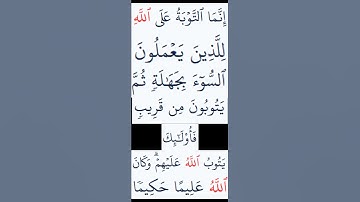 إِنَّمَا ٱلتَّوۡبَةُ عَلَى ٱللَّهِ
لِلَّذِينَ يَعۡمَلُونَ
ٱلسُّوٓءَ بِجَهَٰلَةٖ ثُمَّ
يَتُوبُونَ مِن قَرِيبٖ
فَأُوْلَٰٓئِكَ
يَتُوبُ ٱللَّهُ عَلَيۡهِمۡۗ وَكَانَ
ٱللَّهُ عَلِيمًا حَكِيمٗا